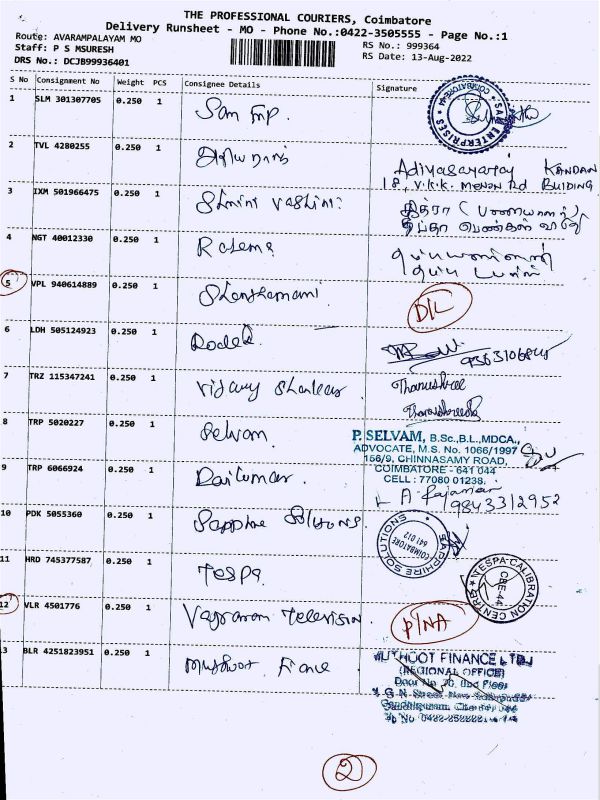 THE PROFESSIONAL COURIERS, Coimbatore
Delivery Runsheet - MO - Phone No.:0422-3505555 - Page No.:1
Route: AVARAMPALAYAM MO
Staff: P S MSURESH
DRS No.: DCJB99936401
RS No.: 999364
RS Date: 13-Aug-2022
S No Consignment No Weight PCS Consignee Details Signature
1 SLM 301307705 0.250 1 Sam Enp.
SAM ENTERPRISES COIMBATORE-44
2 TVL 4280255 0.250 1
Adiyasayaraj KANDAN
18, V.K.K. MENON Rd BUIDING
3 IXM 501966475 0.250 1 Shnini Vashini
4 NGT 40012330 0.250 1 Ratema
5 VPL 940614889 0.250 1 Shanthamani D/L
6 LDH 505124923 0.250 1
7 TRZ 115347241 0.250 1 Vijay Shankar Thanushree
8 TRP 5020227 0.250 1 Selvam
P. SELVAM, B.Sc.,B.L.,MDCA.,
ADVOCATE, M.S. No. 1066/1997
156/9, CHINNASAMY ROAD,
COIMBATORE - 641 044
CELL : 77080 01238.
9 TRP 6066924 0.250 1 Raikumar A. Rajaman
9843312952
10 PDK 5055360 0.250 1 Sapphire Solutions.
SAPPHIRE SOLUTIONS COIMBATORE 641 012
11 HRD 745377587 0.250 1 Tespa
NTESPA CALIBRATION CENTRE CBE-44
12 VLR 4501776 0.250 1 Vayraram Television. P/NA
13 BLR 4251823951 0.250 1 Muthoot Finance
MUTHOOT FINANCE LTD.,
(REGIONAL OFFICE)
2